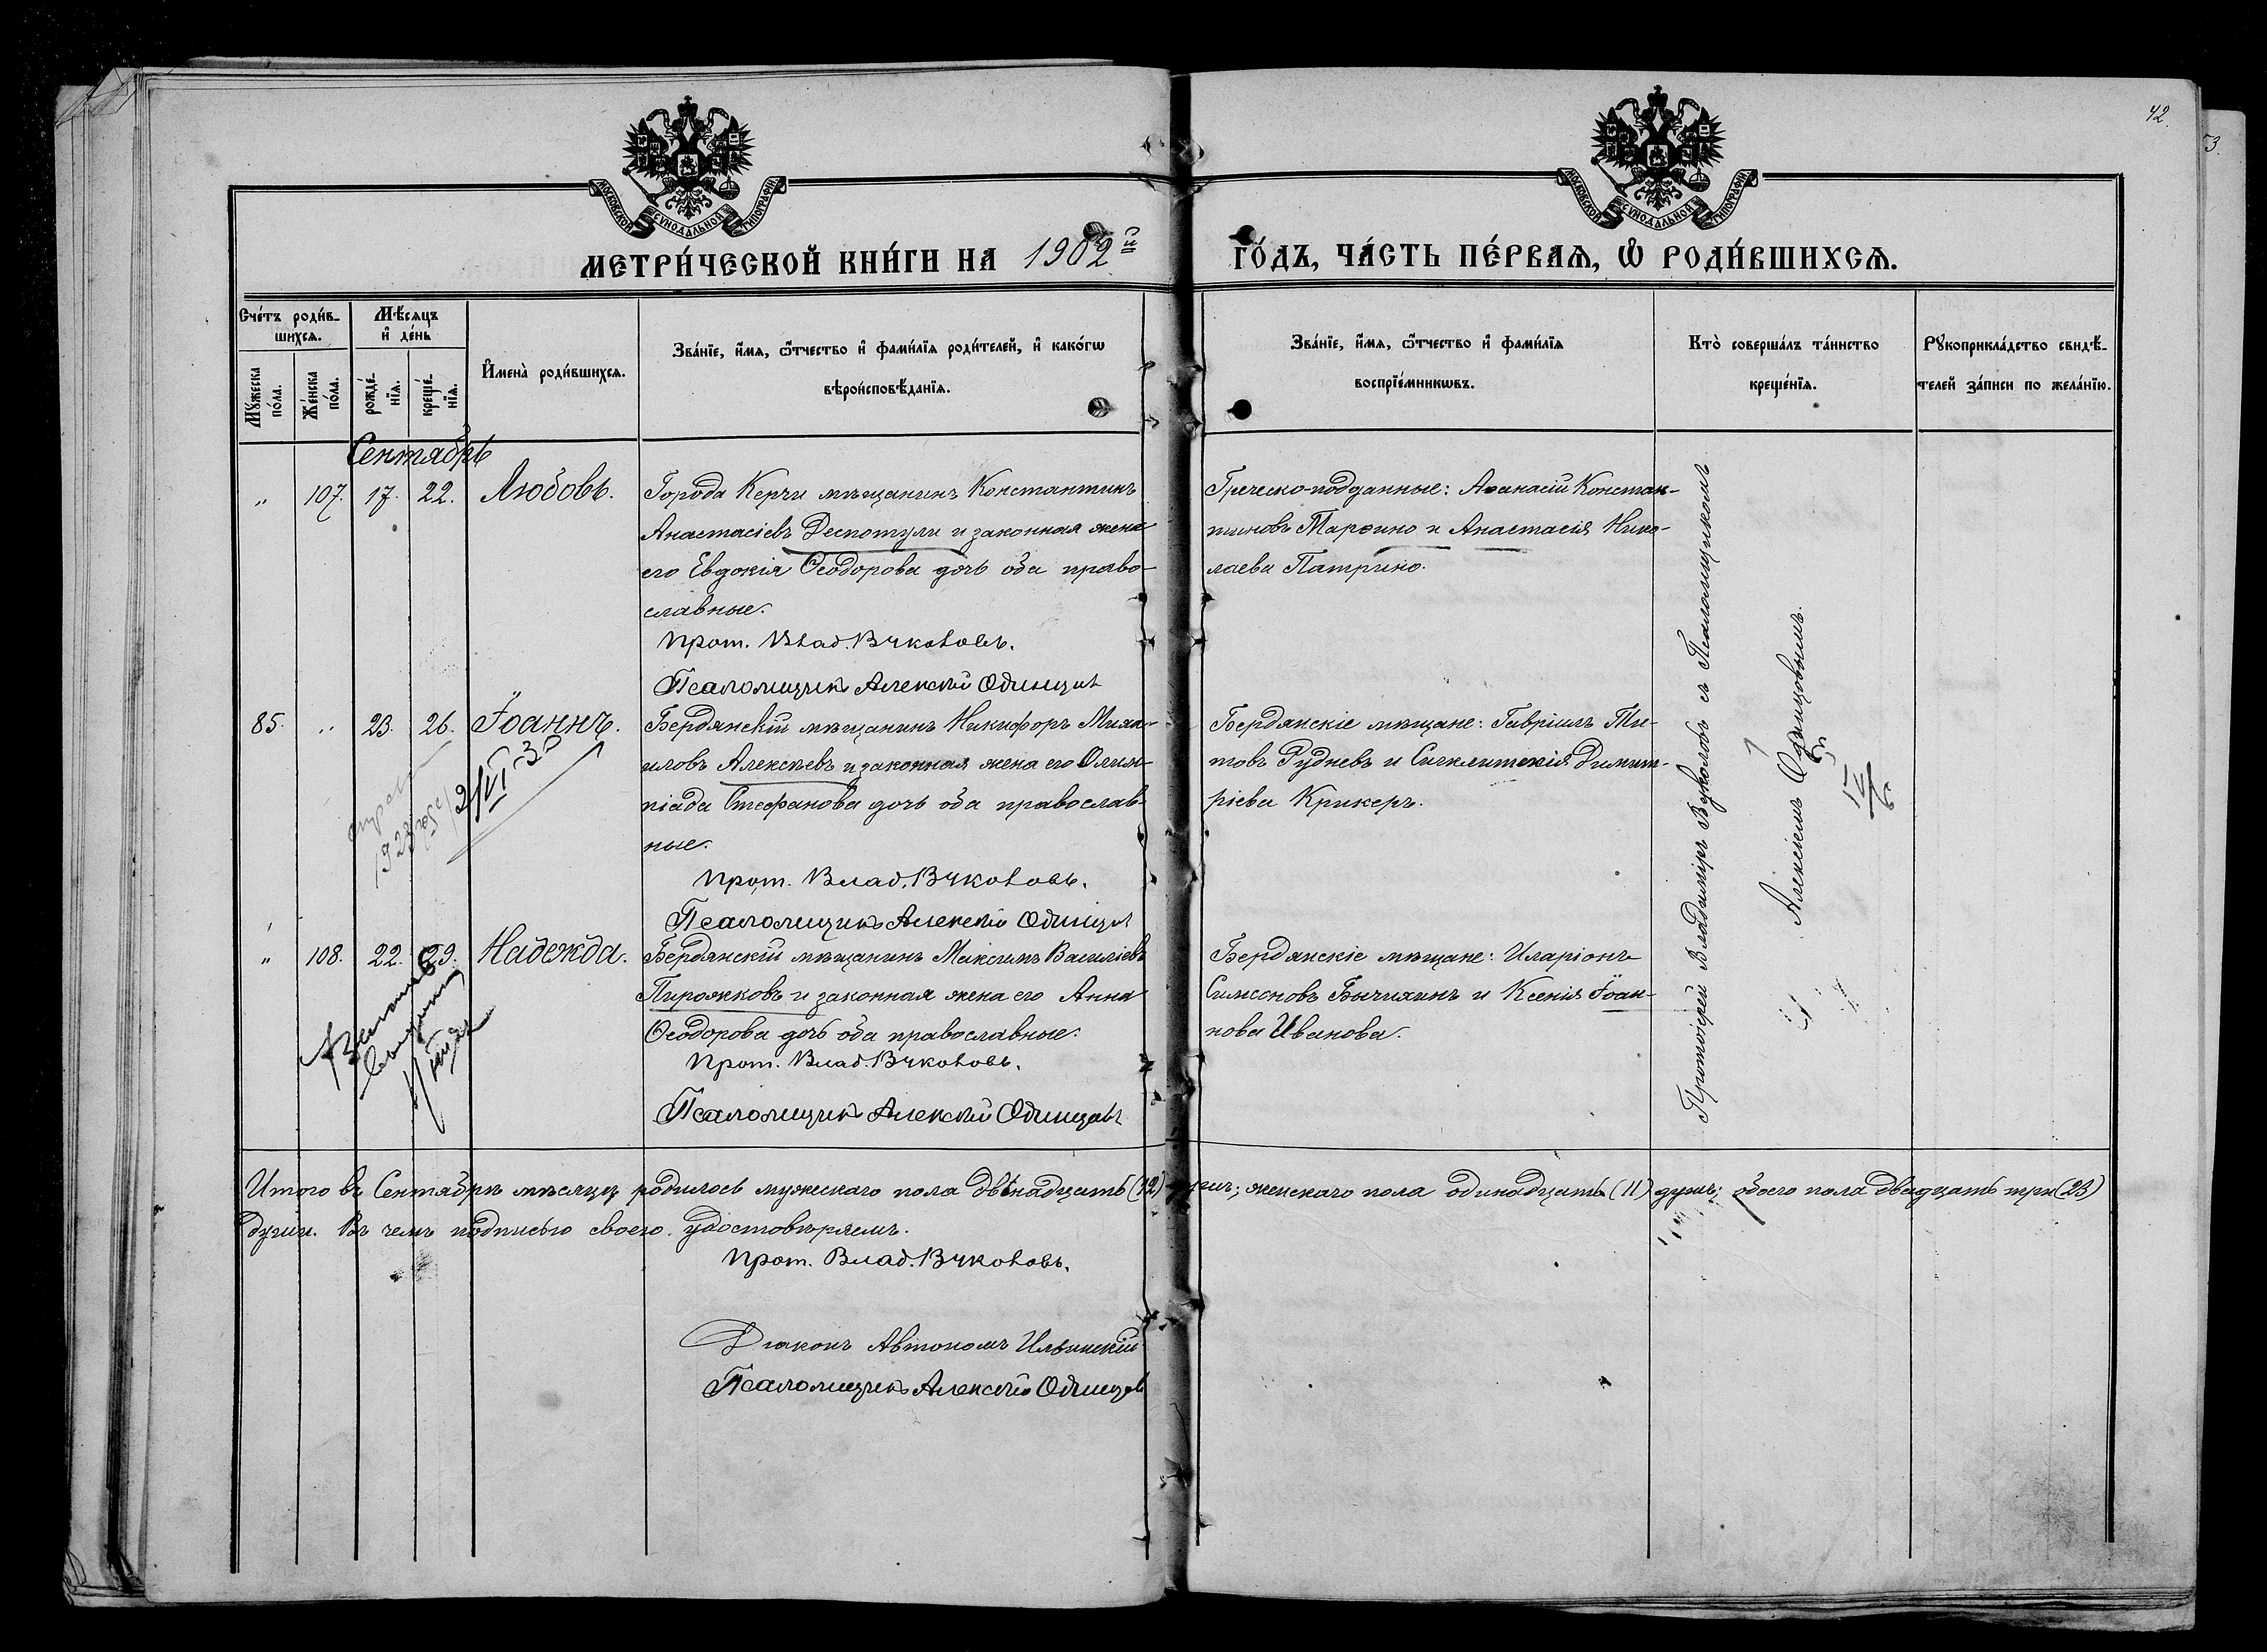 42.
3.
МОСКОВСКОЙ СѴНОДАЛЬНОЙ ТИПОГРАФІИ
МОСКОВСКОЙ СѴНОДАЛЬНОЙ ТИПОГРАФІИ
МЕТРИ́ЧЕСКОЙ КНИ́ГИ НА 1902й ГО́ДЪ, ЧА́СТЬ ПЕ́РВАѦ, Ѽ РОДИ́ВШИХСѦ.
Сче́тъ роди́в-
шихсѧ.
Мꙋ́жеска
по́ла.
Же́нска
по́ла.
Мѣ́сѧцъ
и҆ де́нь
рожде́-
нїѧ.
креще́-
нїѧ.
И҆мена̀ роди́вшихсѧ.
Зва́нїе, и҆́мѧ, ѻ҆́тчество и҆ фами́лїѧ роди́телей, и҆ како́гѡ
вѣроисповѣ́данїѧ.
Зва́нїе, и҆́мѧ, ѻ҆́тчество и҆ фами́лїѧ
воспрїе́мникѡвъ.
Кто̀ соверша́лъ та́инство
креще́нїѧ.
Рꙋкоприкла́дство свидѣ́-
телей за́писи по жела́нїю.
Сентябрь
„ 107. 17. 22. Любовь.
Города Керчи мѣщанинъ Константинъ
Анастасіевъ Деспотули и законная жена
его Евдокія Ѳеодорова дочь оба право-
славные.
Прот. Влад. Вуколовъ.
Псаломщикъ Алексѣй Одинцовъ
Греческо-подданные: Аѳанасій Констан-
тиновъ Марѳино и Анастасія Нико-
лаева Патрино.
85. „ 23. 26. Іоаннъ.
Бердянскій мѣщанинъ Никифоръ Миха-
иловъ Алексѣевъ и законная жена его Олим-
піада Стефанова дочь оба православ-
ные.
Прот. Влад. Вуколовъ.
Псаломщикъ Алексѣй Одинцовъ
Бердянскіе мѣщане: Гавріилъ Ти-
товъ Рудневъ и Сигклитикія Димит-
ріева Крикеръ.
„ 108. 22. 29. Надежда.
Бердянскій мѣщанинъ Максимъ Василіевъ
Пирожковъ и законная жена его Анна
Ѳеодорова дочь оба православные.
Прот. Влад. Вуколовъ.
Псаломщикъ Алексѣй Одинцовъ
Бердянскіе мѣщане: Иларіонъ
Симеоновъ Бычихинъ и Ксенія Іоан-
нова Иванова.
Протоіерей Владиміръ Вуколовъ съ Псаломщикомъ
Алексіемъ Одинцовымъ.
Итого въ Сентябрѣ мѣсяцѣ родилось мужескаго пола двѣнадцать (12) душъ; женскаго пола одинадцать (11) душъ; обоего пола двадцать три (23)
души. Въ чемъ подписью своею удостовѣряемъ.
Прот. Влад. Вуколовъ.
Діаконъ Автономъ Ильинскій
Псаломщикъ Алексѣй Одинцовъ